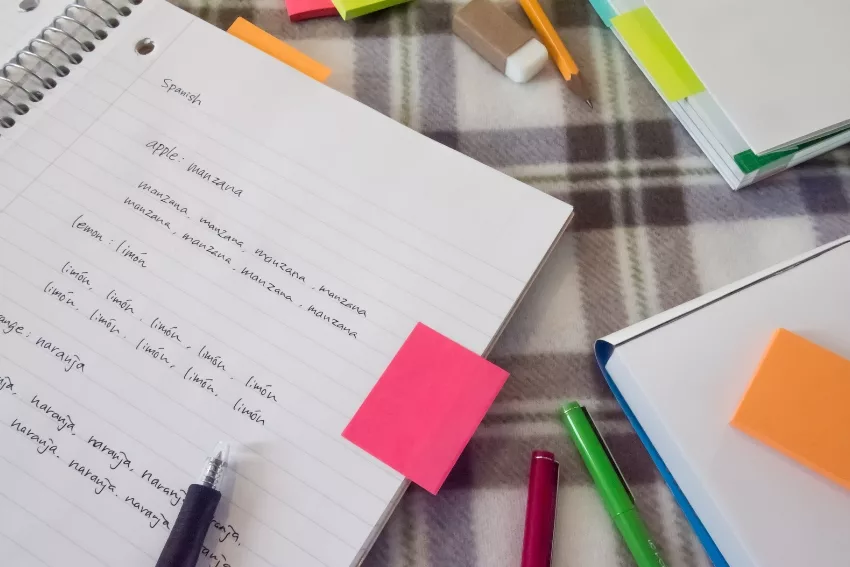 Spanish
apple : manzana
manzana, manzana, manzana, manzana
manzana, manzana, manzana, manzana
lemon : limón
limón, limón, limón, limón, limón
limón, limón, limón, limón, limón
ange : naranja
naranja, naranja,
naranja, naranja, naranja